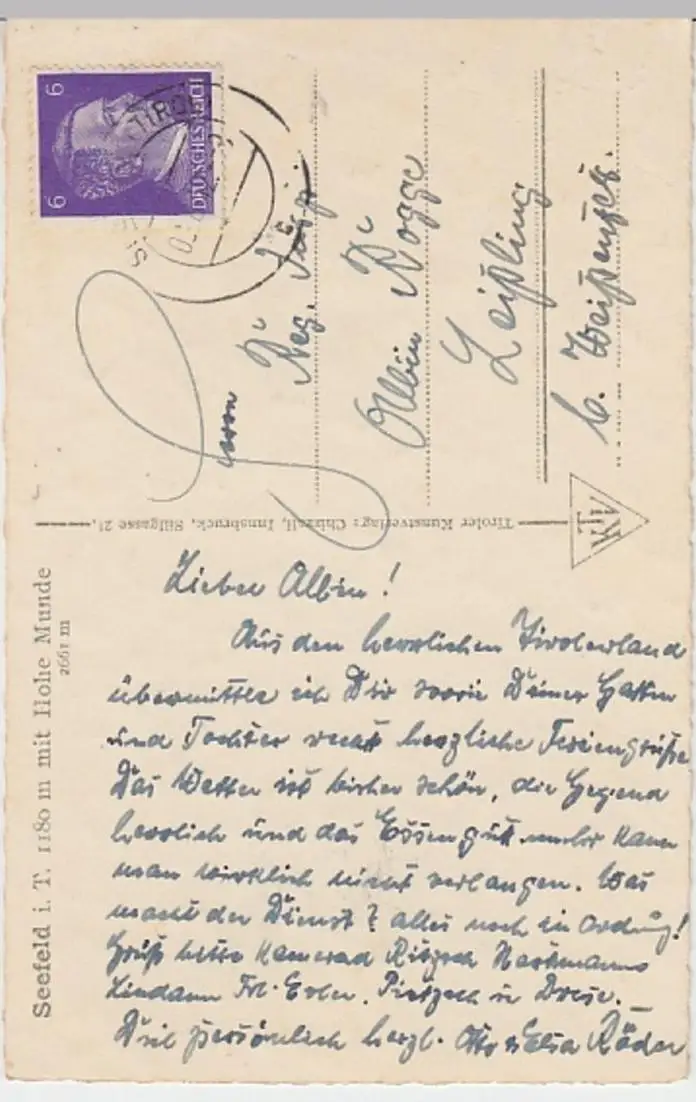 6 6
DEUTSCHES REICH
(TIROL)
Herrn
Reg.
Albin Rogge
Leißling
b. Weißenfels.
TKV
Tiroler Kunstverlag: Chizzali, Innsbruck, Sillgasse 21,
Seefeld i. T. 1180 m mit Hohe Munde
2661 m
Lieber Albin!
Aus den herrlichen Tirolerland
übermittle ich Dir sowie Deiner Gattin
und Tochter recht herzliche Feriengrüße
Das Wetter ist bisher schön, die Gegend
herrlich und das Essen gut. mehr kann
man wirklich nicht verlangen. Was
macht der Dienst? alles noch in Ordnung!
Grüß bitte Kamerad
Frl.
Dich persönlich herzl. Otto u Elsa Röder